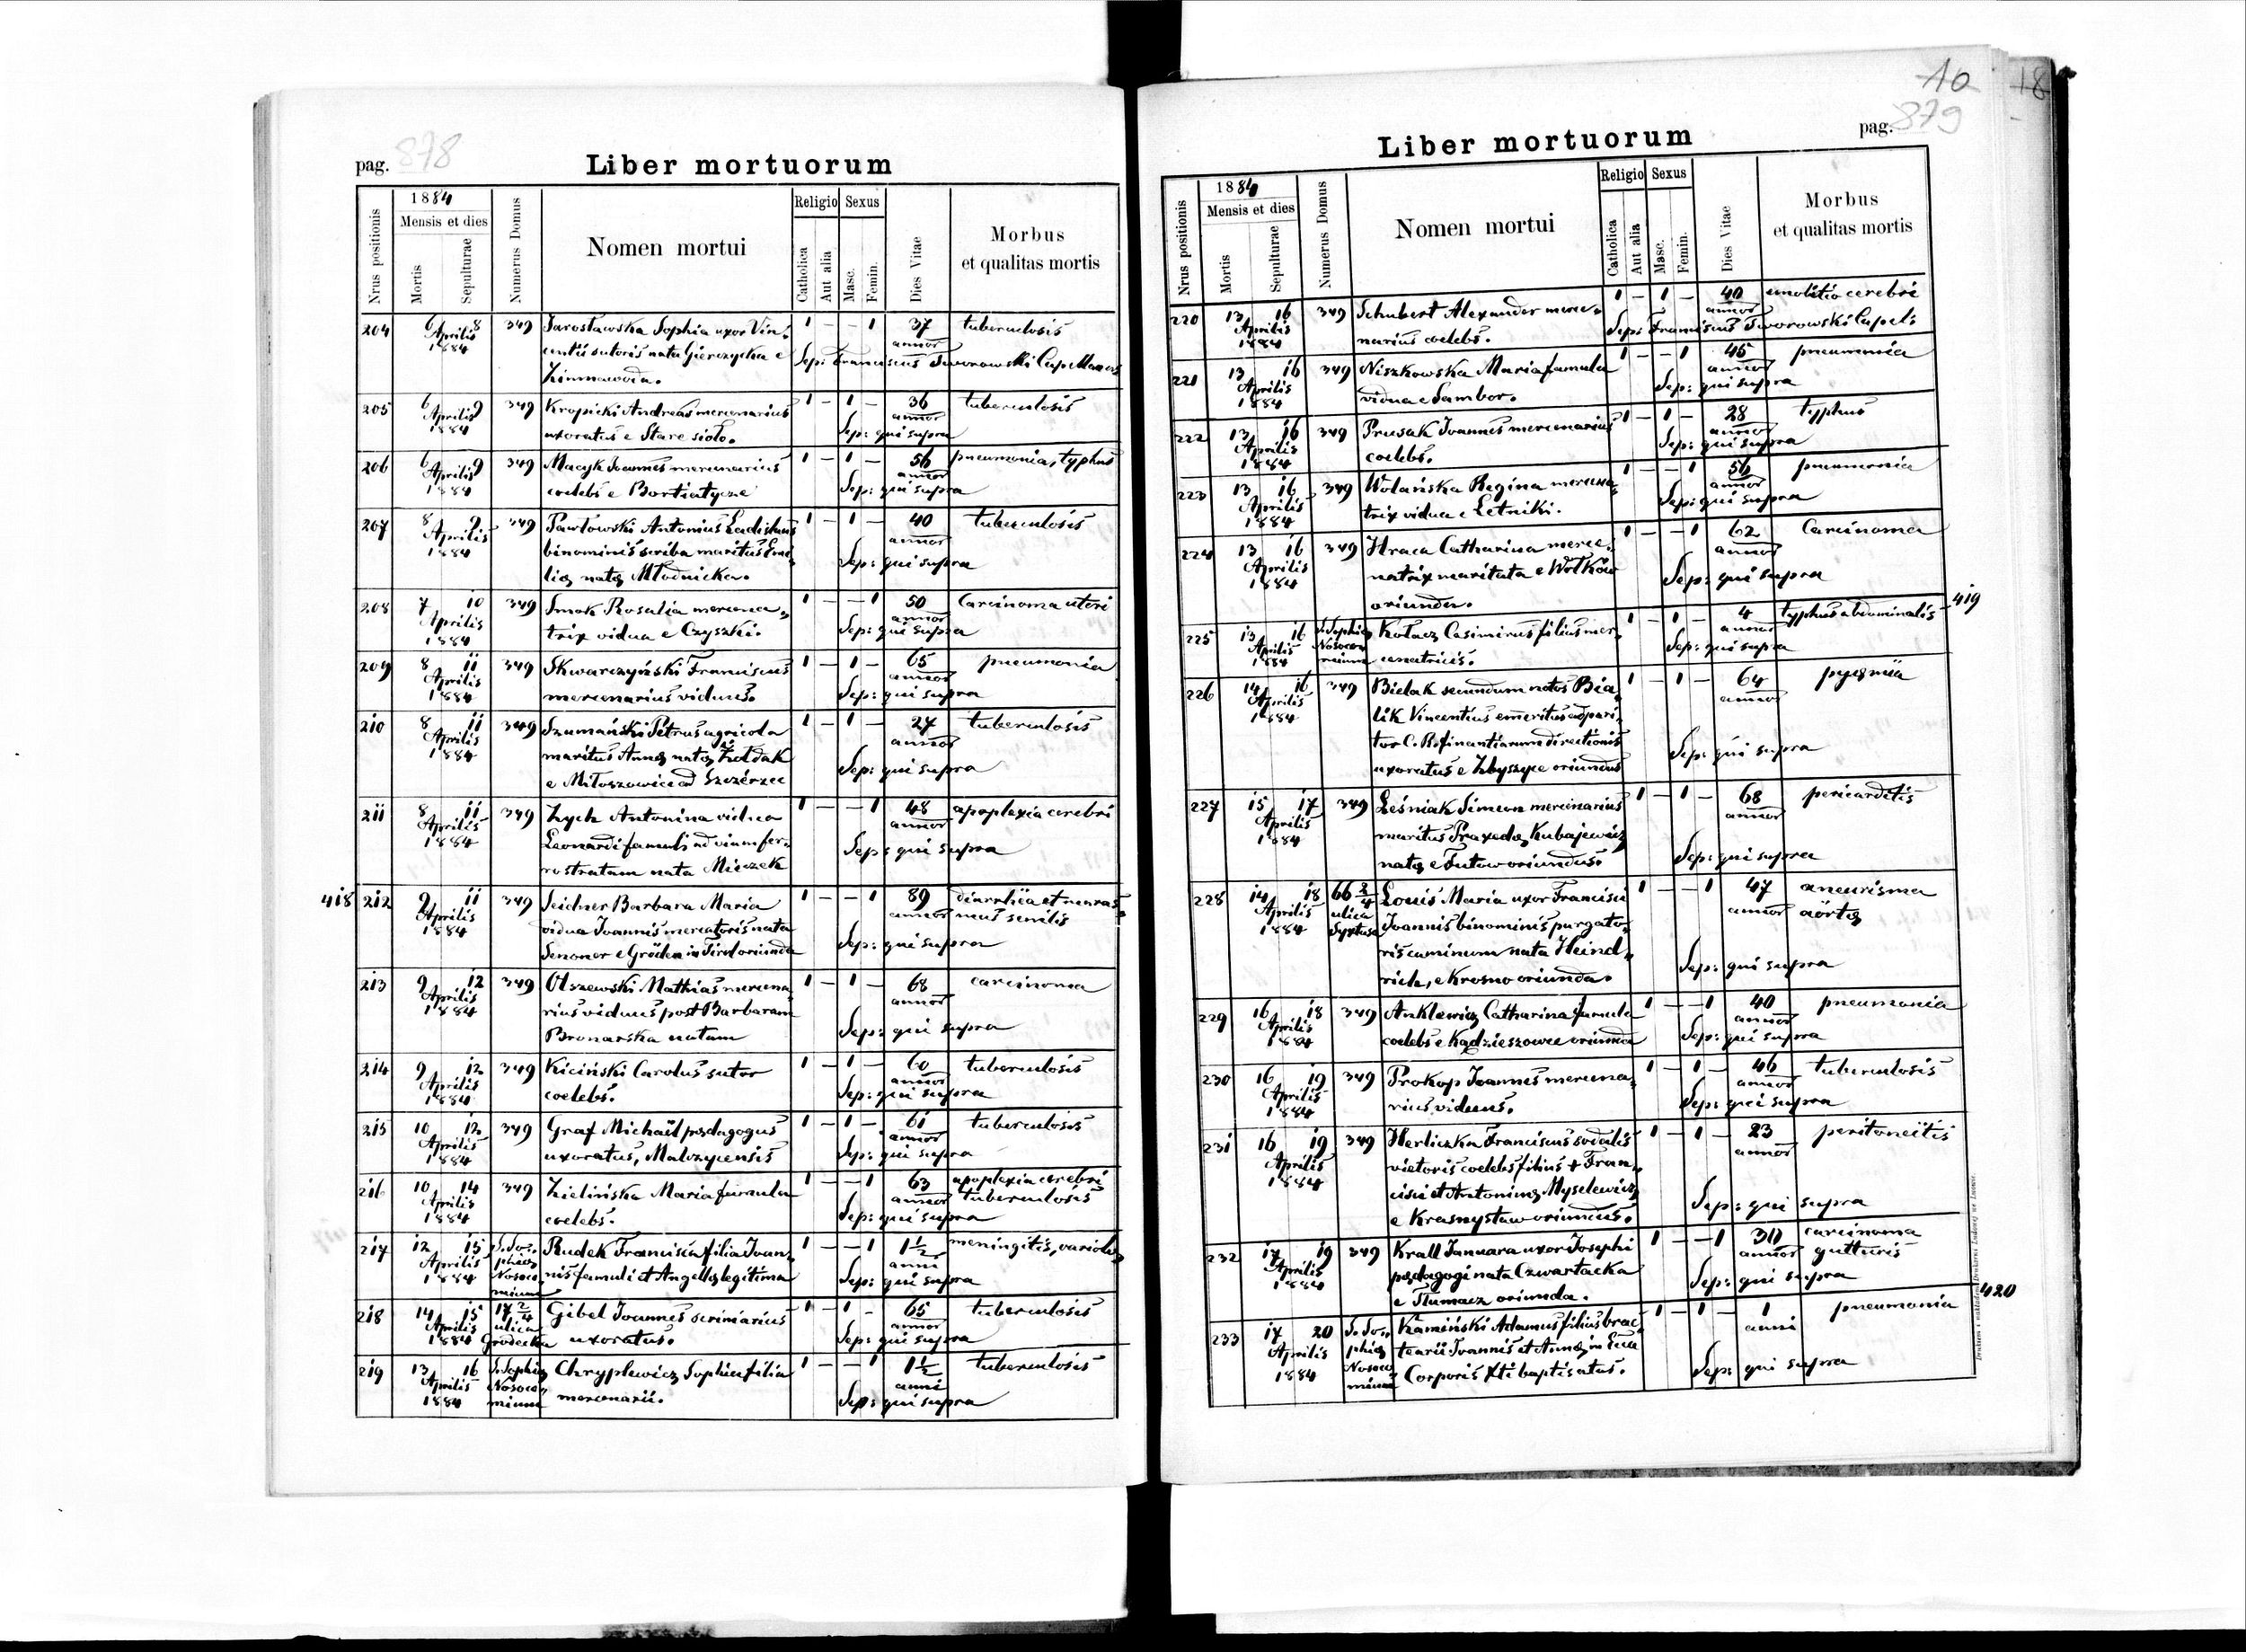 pag. 878
Liber mortuorum
Nrus positionis
1884
Mensis et dies
Mortis
Sepulturae
Numerus Domus
Nomen mortui
Religio
Catholica
Aut alia
Sexus
Masc.
Femin.
Dies Vitae
Morbus
et qualitas mortis
204 6 8 349 Jarosławska Sophia uxor Vin- 1 — — 1 37 tuberculosis
Aprilis centii sutoris nata Gierczycka e annor
1884 Sep: Franciscus Tworowski Capellanus
Zimnawoda.
205 6 9 349 Kropicki Andreas mercenarius 1 — 1 — 36 tuberculosis
Aprilis uxoratus e Stare sioło. annor
1884 Sep: qui supra
206 6 9 349 Macyk Joannes mercenarius 1 — 1 — 56 pneumonia, typhus
Aprilis coelebs e Bortiatycze annor
1884 Sep: qui supra
207 8 9 349 Pawłowski Antonius Ladislaus 1 — 1 — 40 tuberculosis
Aprilis binominis scriba maritus Emi- annor
1884 Sep: qui supra
lią natą Młodnicka.
208 7 10 349 Smok Rosalia mercena- 1 — — 1 50 Carcinoma uteri
Aprilis trix vidua e Czyszki. annor
1884 Sep: qui supra
209 8 11 349 Skwarczyński Franciscus 1 — 1 — 65 pneumonia
Aprilis mercenarius viduus. annor
1884 Sep: qui supra
210 8 11 349 Szumański Petrus agricola 1 — 1 — 27 tuberculosis
Aprilis maritus Annę natę Żołdak annor
1884 e Miłoszowice ad Szczérzec Sep: qui supra
211 8 11 349 Zych Antonina vidua 1 — — 1 48 apoplexia cerebri
Aprilis Leonardi famuli ad viam fer- annor
1884 rostratam nata Mieczek Sep: qui supra
418 212 9 11 349 Seidner Barbara Maria 1 — — 1 89 diarrhëa et maras-
Aprilis vidua Joannis mercatoris nata annor mus senilis
1884 Senoner e Gröden in Tirol oriunda Sep: qui supra
213 9 12 349 Olszewski Mathias mercena- 1 — 1 — 68 carcinoma
Aprilis rius viduus post Barbaram annor
1884 Bronarska natam Sep: qui supra
214 9 12 349 Kiciński Carolus sutor 1 — 1 — 60 tuberculosis
Aprilis coelebs. annor
1884 Sep: qui supra
215 10 12 349 Graf Michaël pędagogus 1 — 1 — 61 tuberculosis
Aprilis uxoratus, Malczycensis annor
1884 Sep: qui supra
216 10 14 349 Zielińska Maria famula 1 — — 1 63 apoplexia cerebri
Aprilis coelebs. annor tuberculosis
1884 Sep: qui supra
217 12 15 S. So- Rudek Francisca filia Joan- 1 — — 1 1½ meningitis, variolę
Aprilis phię nis famuli et Angellę legitima anni
1884 Nosoco- Sep: qui supra
mium
218 14 15 17 2/4 Gibel Joannes scriniarius 1 — 1 — 65 tuberculosis
Aprilis ulica uxoratus. annor
1884 Grodecka Sep: qui supra
219 13 16 S. Sophię Chryplewicz Sophia filia 1 — — 1 1½ tuberculosis
Aprilis Nosoco- mercenarii. anni
1884 mium Sep: qui supra
10
18
pag. 879
Liber mortuorum
Nrus positionis
1884
Mensis et dies
Mortis
Sepulturae
Numerus Domus
Nomen mortui
Religio
Catholica
Aut alia
Sexus
Masc.
Femin.
Dies Vitae
Morbus
et qualitas mortis
220 13 16 349 Schubert Alexander merce- 1 — 1 — 40 emolitio cerebri
Aprilis narius coelebs. annor
1884 Sep: Franciscus Tworowski Capel:
221 13 16 349 Niszkowska Maria famula 1 — — 1 45 pneumonia
Aprilis vidua e Sambor. annor
1884 Sep: qui supra
222 13 16 349 Prusak Joannes mercenarius 1 — 1 — 28 typhus
Aprilis coelebs. annor
1884 Sep: qui supra
223 13 16 349 Wolańska Regina mercena- 1 — — 1 56 pneumonia
Aprilis trix vidua e Letniki. annor
1884 Sep: qui supra
224 13 16 349 Hraca Catharina merce- 1 — — 1 62 Carcinoma
Aprilis natrix maritata e Wołków annor
1884 oriunda. Sep: qui supra
225 13 16 S. Sophię Kołacz Casimirus filius mer- 1 — 1 — 4 typhus abdominalis 419
Aprilis Nosoco- cenatricis. annor
1884 mium Sep: qui supra
226 14 16 349 Bielak secundum natos Bia- 1 — 1 — 64 pyęmia
Aprilis lik Vincentius emeritus ad pari- annor
1884 tor C. R. finantiarum directionis
uxoratus e Zbyszyce oriundus Sep: qui supra
227 15 17 349 Leśniak Simeon mercenarius 1 — 1 — 68 pericarditis
Aprilis maritus Praxedę Kubajewicz annor
1884 natę e Tutow oriundus. Sep: qui supra
228 14 18 66 2/4 Louis Maria uxor Francisci 1 — — 1 47 aneurisma
Aprilis ulica Joannis binominis purgato- annor aörtę
1884 Syxtusa ris caminum nata Heind-
rich, e Krosno oriunda. Sep: qui supra
229 16 18 349 Anklewicz Catharina famula 1 — — 1 40 pneumonia
Aprilis coelebs e Kądzieszowce oriunda annor
1884 Sep: qui supra
230 16 19 349 Prokop Joannes mercena- 1 — 1 — 46 tuberculosis
Aprilis rius viduus. annor
1884 Sep: qui supra
231 16 19 349 Herliczka Franciscus sodalis 1 — 1 — 23 peritoneitis
Aprilis vietoris coelebs filius + Fran- annor
1884 cisci et Antoninę Myselewicz
e Krasnystaw oriundus. Sep: qui supra
232 17 19 349 Krall Januara uxor Josephi 1 — — 1 30 carcinoma
Aprilis pędagogi nata Czwartacka annor gutturis
1884 e Tłumacz oriunda. Sep: qui supra
233 17 20 S. So- Kamiński Adamus filius brac- 1 — 1 — 1 pneumonia 420
Aprilis phię tearii Joannis et Annę in Eccl anni
1884 Nosoco- Corporis Xti baptisatus. Sep: qui supra
mium